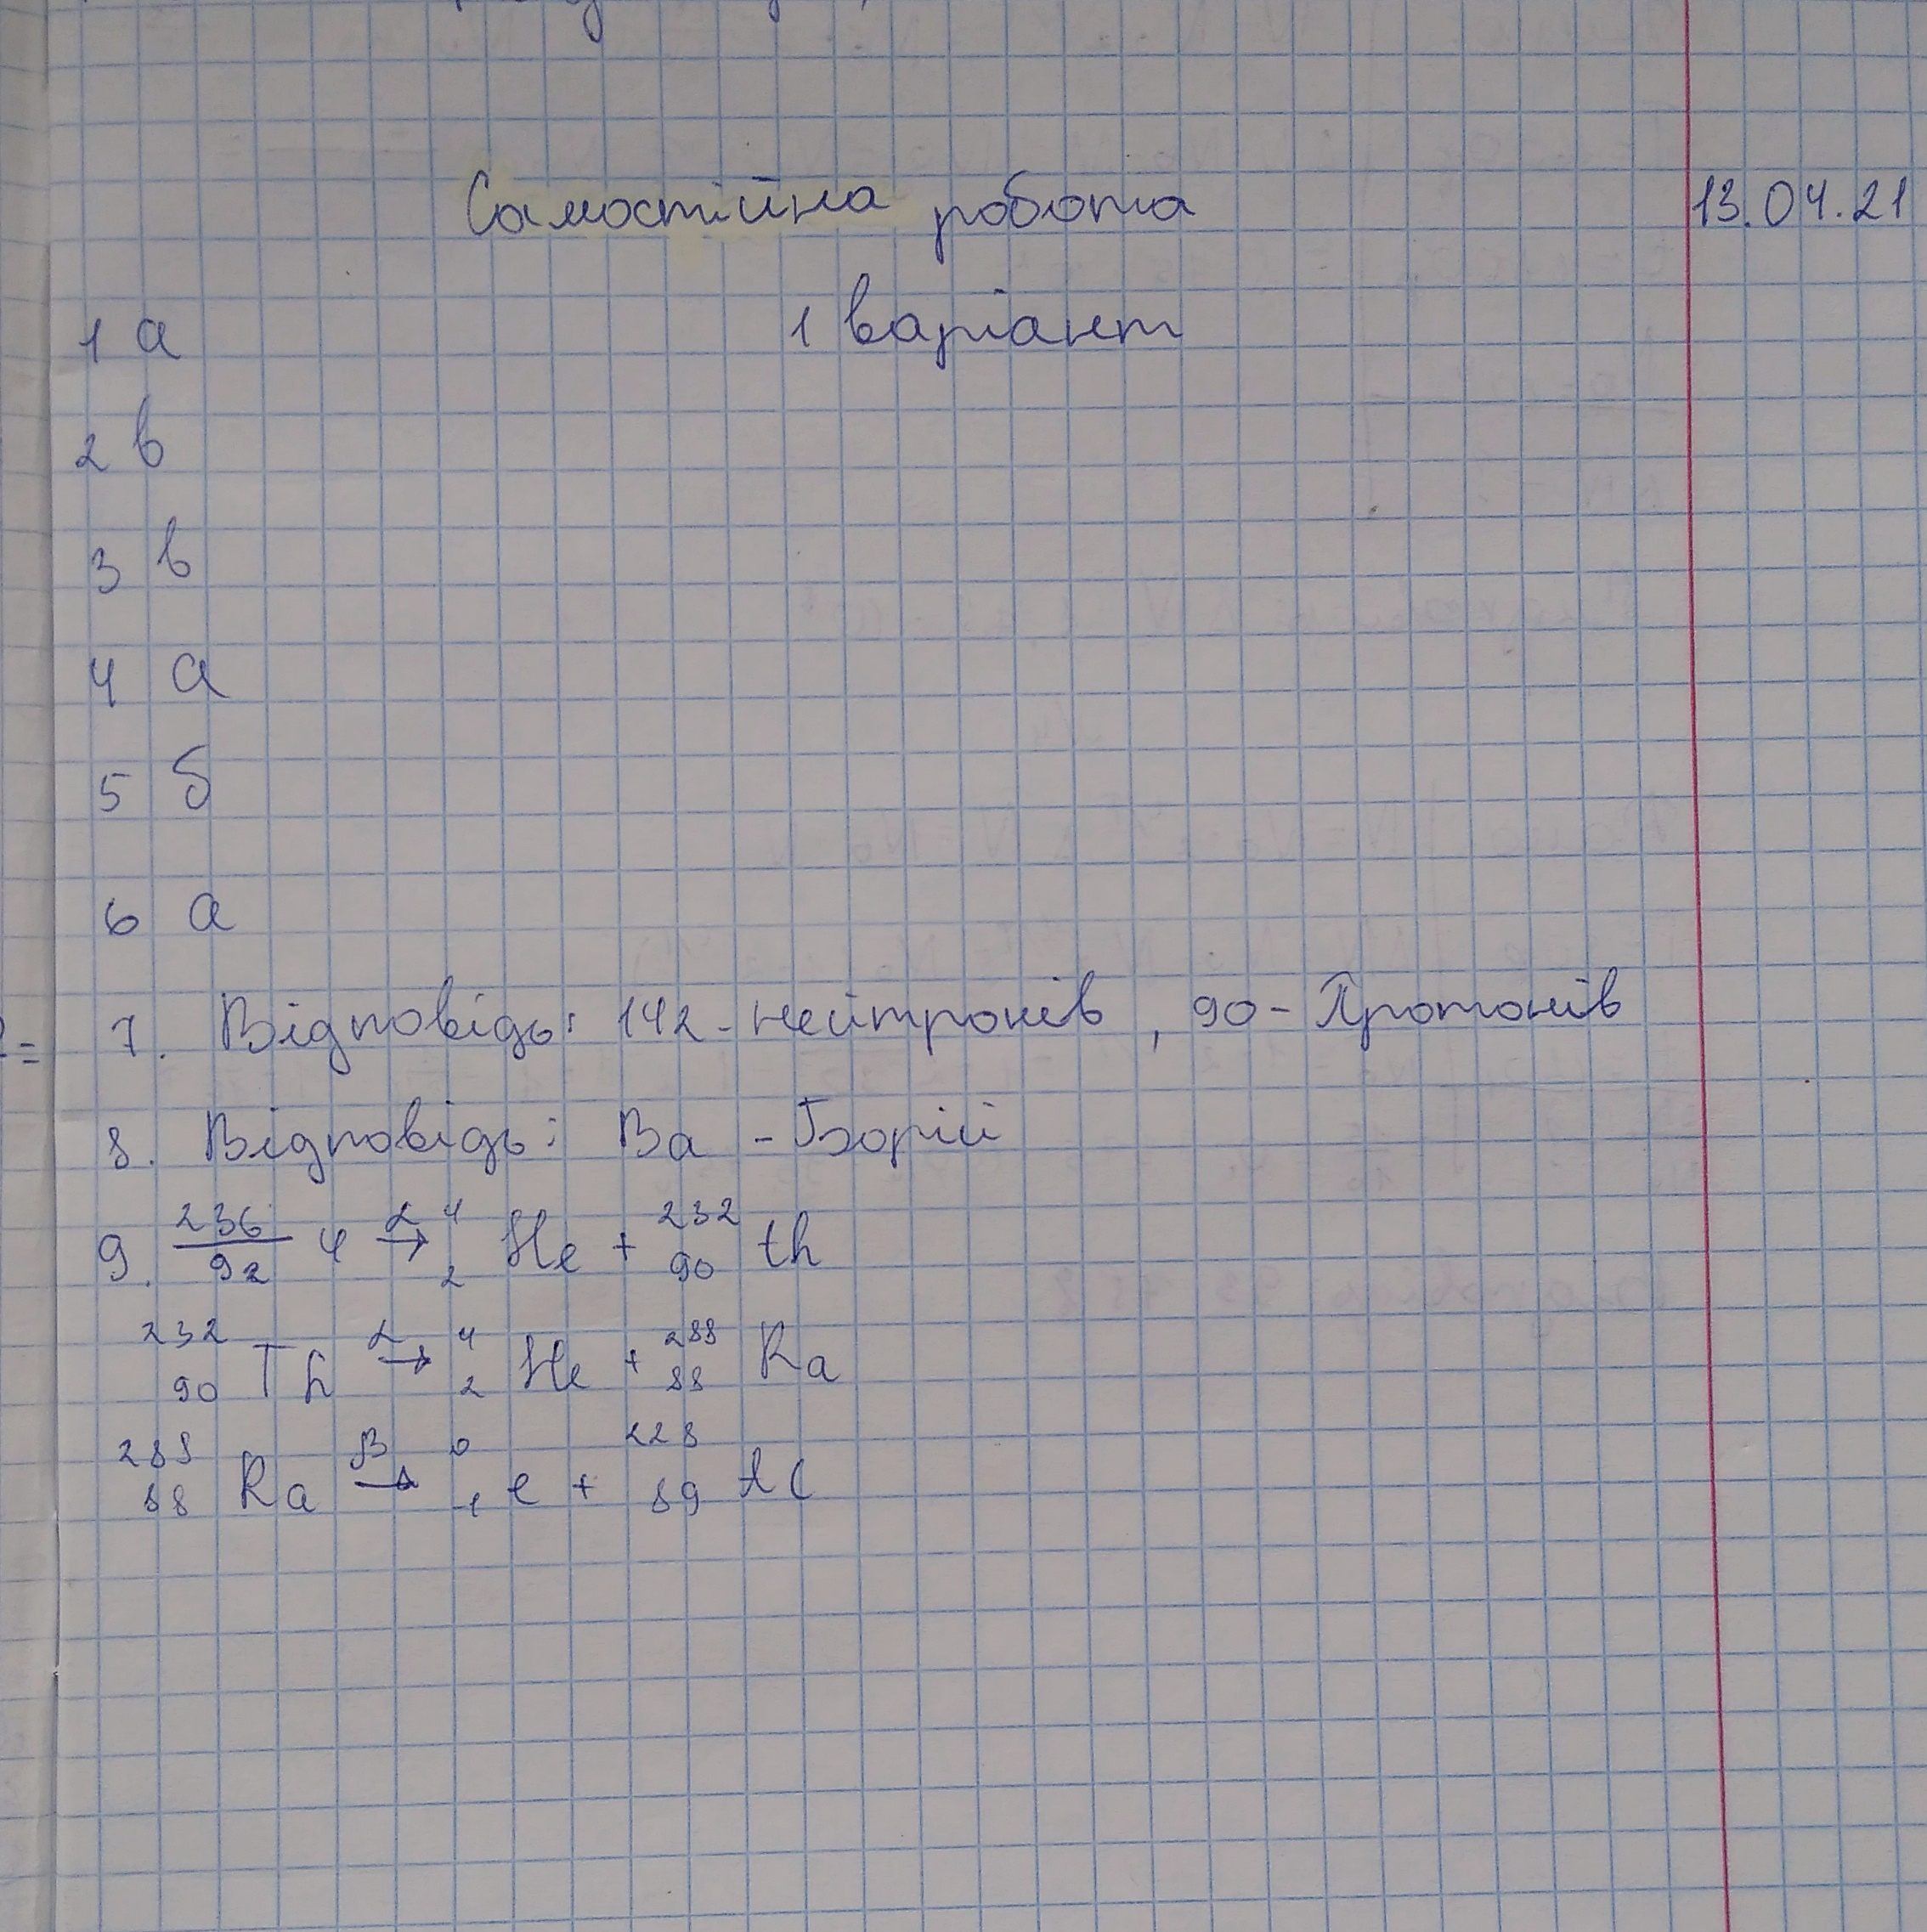 Самостійна робота 13.04.21
1 варіант
1 а
2 в
3 в
4 а
5 б
6 а
7. Відповідь: 142-нейтронів, 90-Протонів
8. Відповідь: Ba - Борій
9. 236/92 U α→ 4/2 He + 232/90 th
232/90 Th α→ 4/2 He + 288/88 Ra
288/88 Ra β→ 0/-1 e + 228/89 Ac